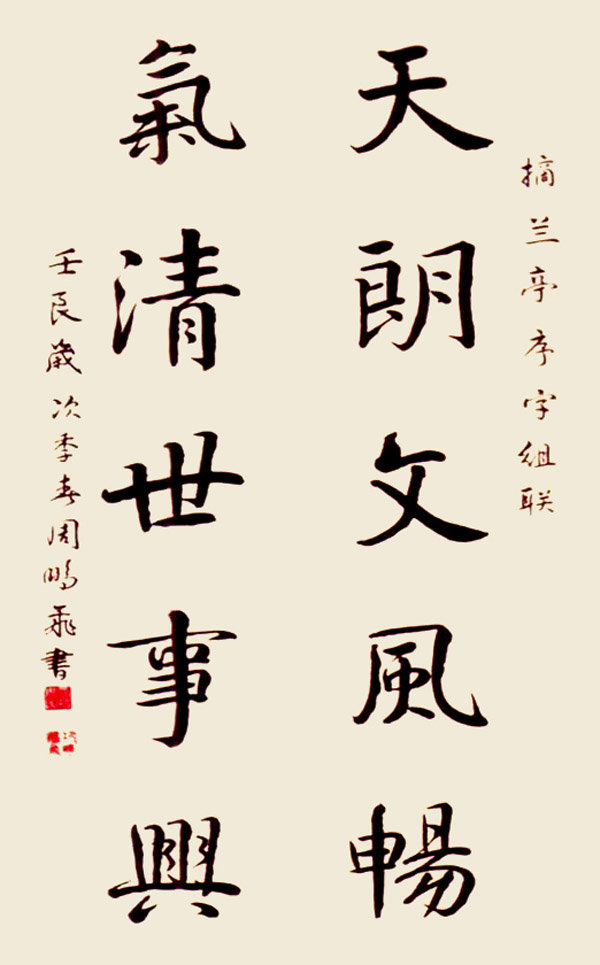 摘兰亭序字组联
天朗文風暢
氣清世事興
壬辰歲次季春周鹏飛書